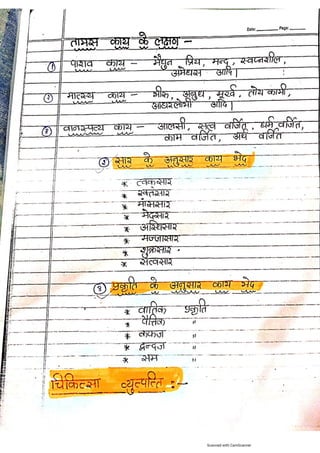 Date: Page:
तामस काय के लक्षण –
① पाशव काय – मैथुन प्रिय, मन्द, स्वप्नशील,
अमेधस आदि।
② मात्स्य काय – भीरु, अबुध, मूर्ख, तोय कामी,
आहारलोभी आदि
③ वानस्पत्य काय – आलसी, सत्व वर्जित, धर्म वर्जित,
काम वर्जित, अर्थ वर्जित
② सार के अनुसार काय भेद
* त्वकसार
* रक्तसार
* मांससार
* मेदसार
* अस्थिसार
* मज्जासार
* शुक्रसार
* सत्वसार
③ प्रकृति के अनुसार काय भेद
* वातिक प्रकृति
* पैत्तिक "
* कफज "
* द्वन्दज "
* सम "
चिकित्सा व्युत्पत्ति :-
Scanned with CamScanner